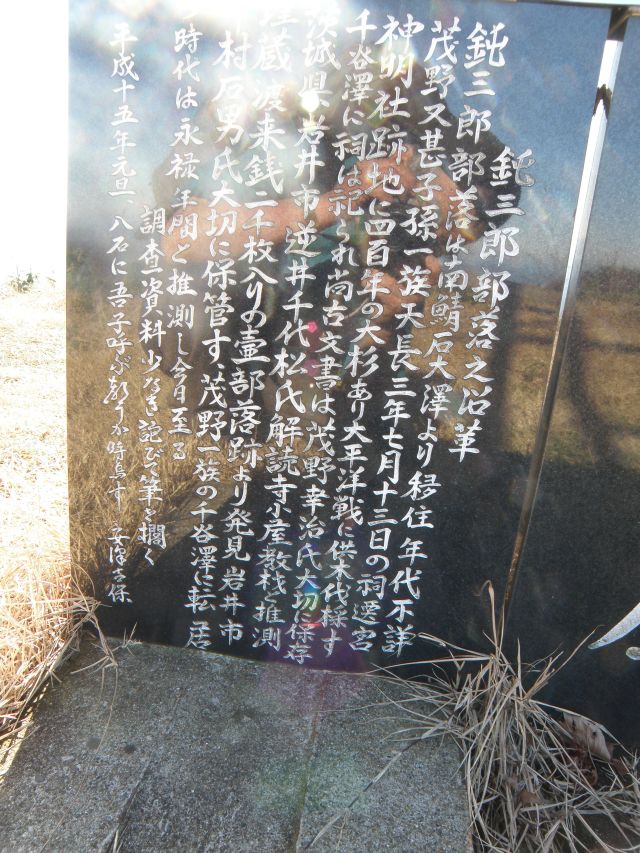 鈍三郎部落之沿革
鈍三郎部落は南鯖石大澤より移住 年代不詳
茂野又甚子孫一族 天長三年七月十三日の祠遷宮
神明社跡地に四百年の大杉あり 大平洋戦に供木伐採す
千谷澤に祠は祀られ 尚古文書は茂野幸治氏大切に保存
茨城県岩井市逆井千代松氏解読 寺小屋教材と推測
埋蔵渡来銭二千枚入りの壷部落跡より発見 岩井市
村石男氏大切に保管す、茂野一族の千谷澤に転居
時代は永禄年間と推測し今日至る
調査資料少なき詫びて筆を擱く
平成十五年元旦、八石に吾子呼ぶ